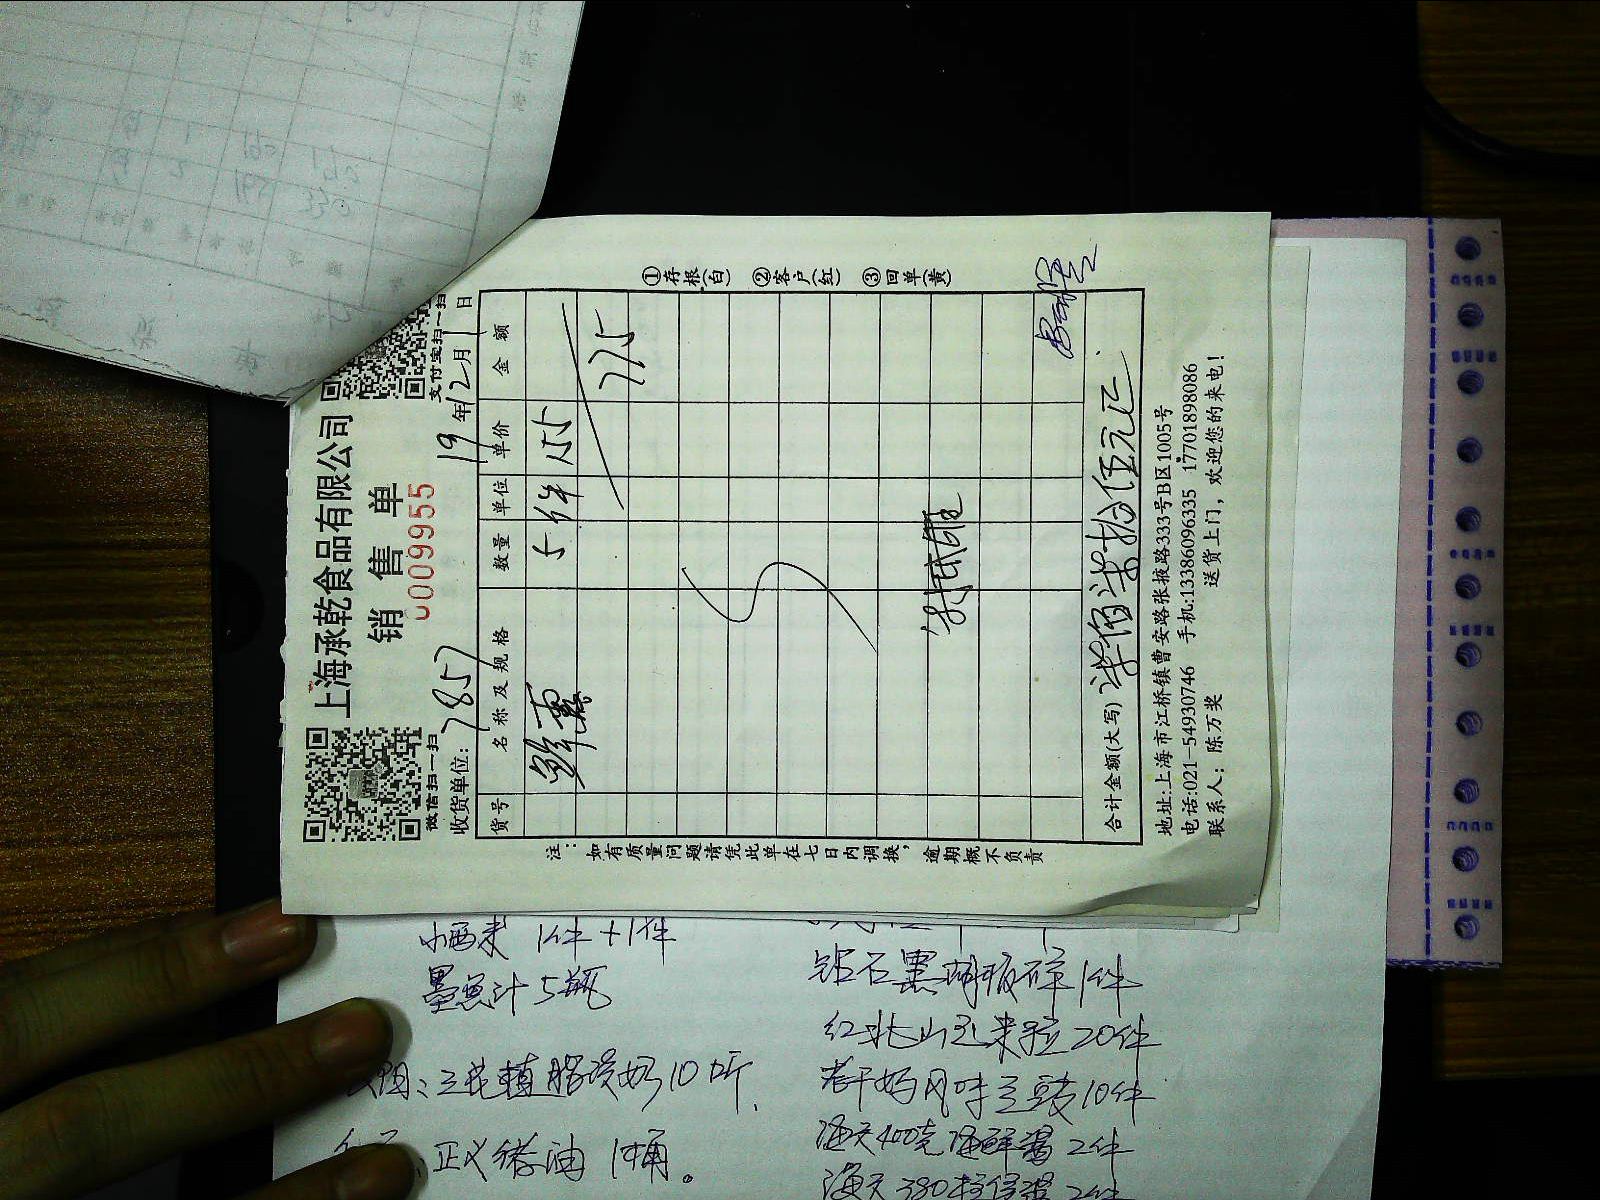 上海承乾食品有限公司
销售单
0009955
微信扫一扫
支付宝扫一扫
收货单位: 7857
19年12月1日
货号 名称及规格 数量 单位 单价 金额
鲜 5 件 155
775
合计金额(大写) 柒佰柒拾伍元正
地址:上海市江桥镇曹安路张掖路333号B区1005号
电话:021-54930746 手机:13386096335 17701898086
联系人:陈万奖 送货上门,欢迎您的来电!
注:如有质量问题请凭此单在七日内调换,逾期概不负责
①存根(白) ②客户(红) ③回单(黄)
小西米 1件+1件
墨鱼汁5瓶
三花植脂淡奶10听
正义猪油 1桶。
钻石黑胡椒碎1件
红北山玉米粒20件
老干妈风味豆豉10件
海天400克海鲜酱2件
海天380 2件